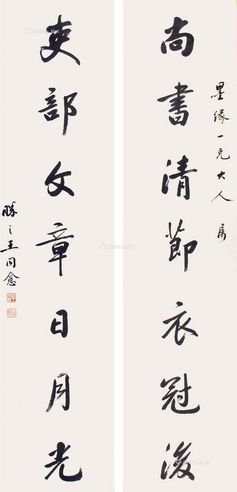 緣一兄大人屬
尚書清節衣冠後
吏部文章日月光
勝之王同愈